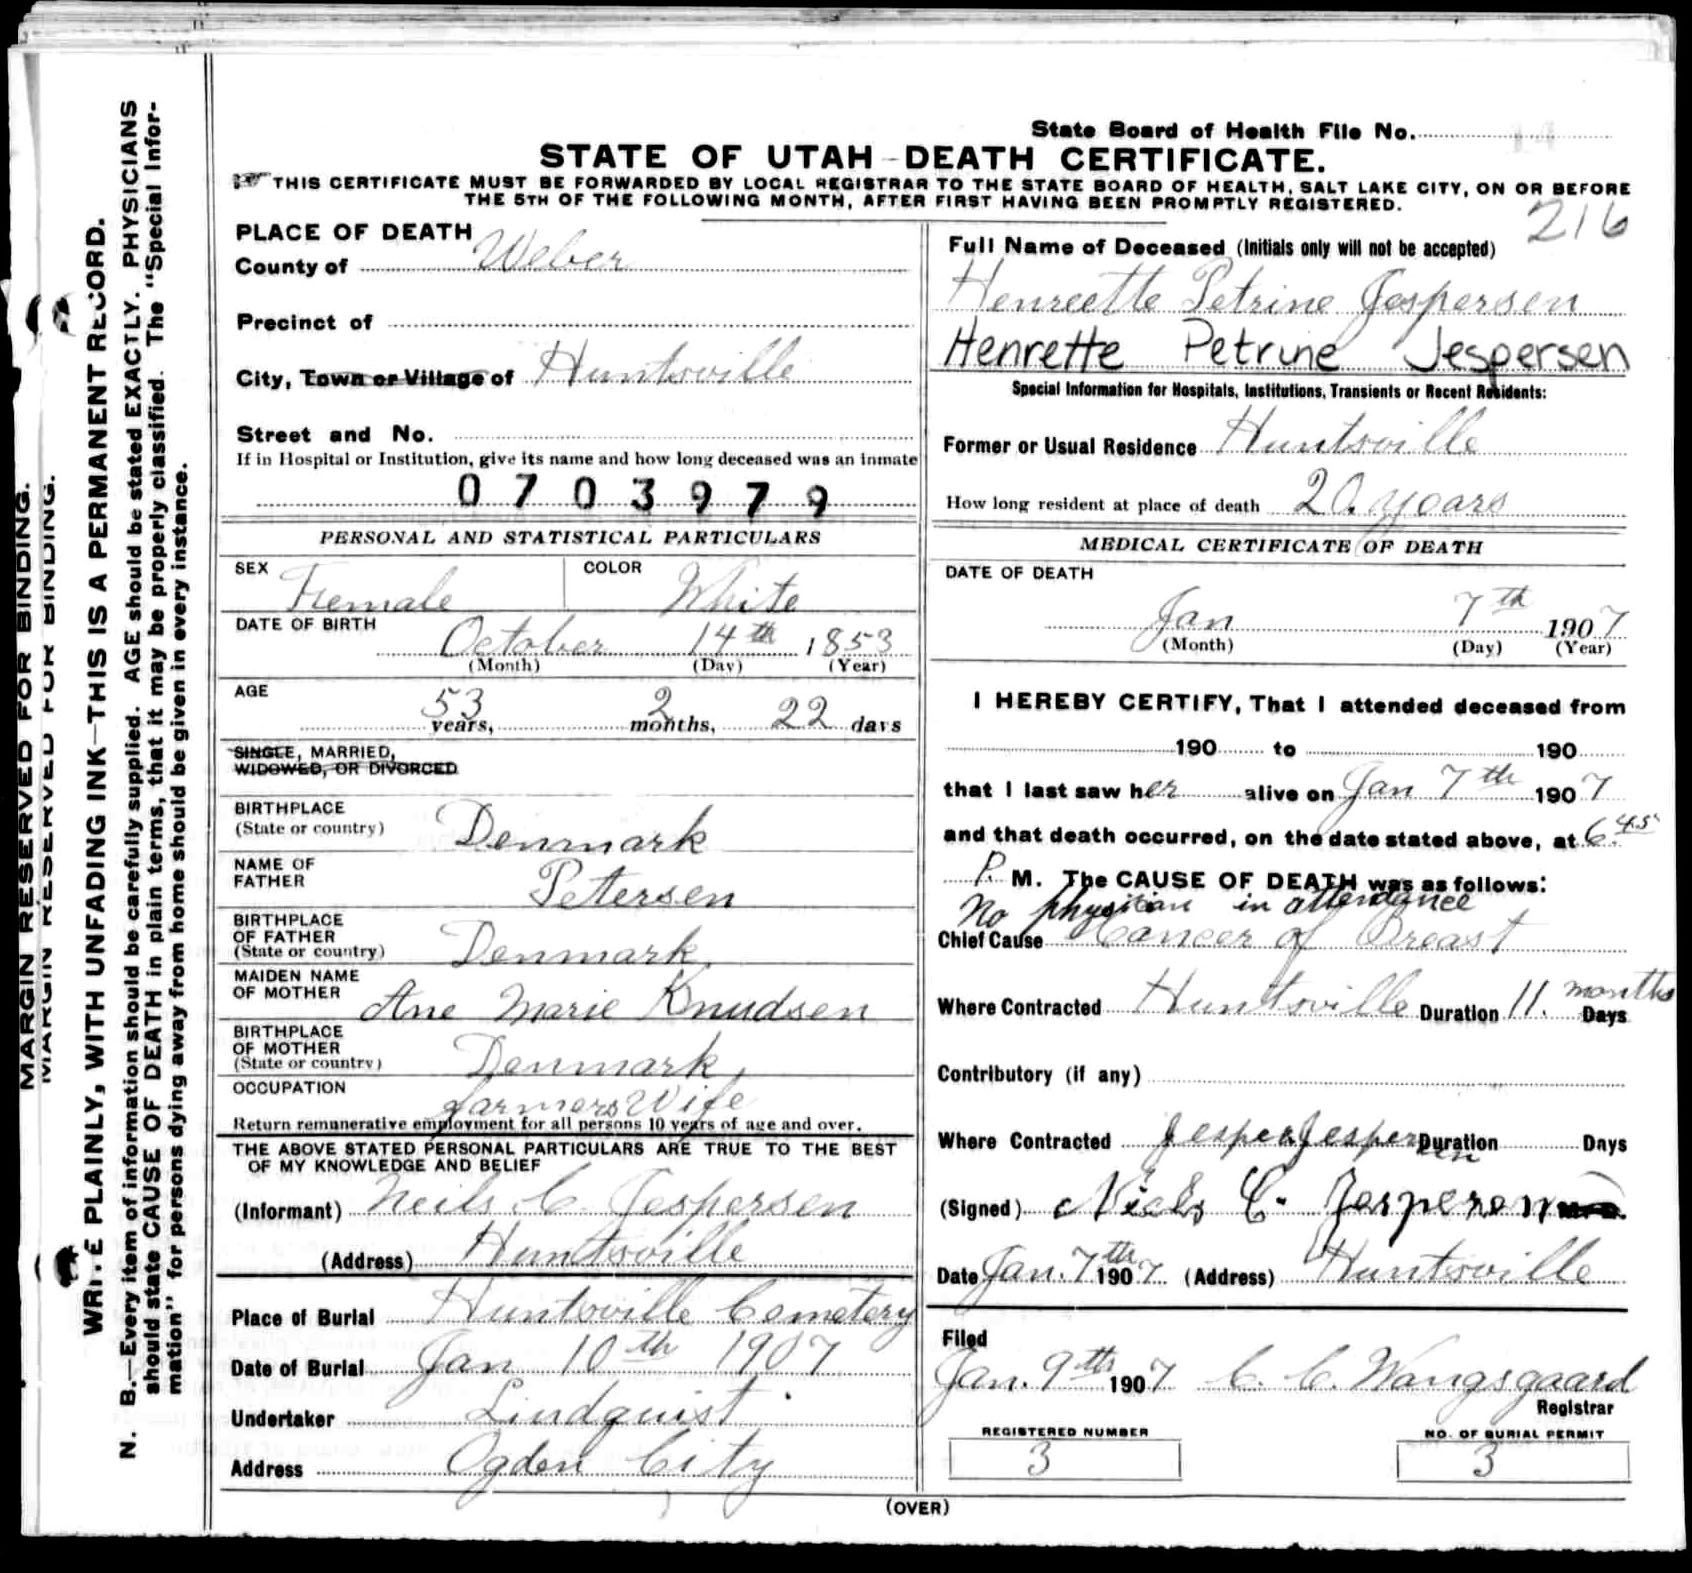 State Board of Health File No. 14
STATE OF UTAH—DEATH CERTIFICATE.
THIS CERTIFICATE MUST BE FORWARDED BY LOCAL REGISTRAR TO THE STATE BOARD OF HEALTH, SALT LAKE CITY, ON OR BEFORE
THE 5TH OF THE FOLLOWING MONTH, AFTER FIRST HAVING BEEN PROMPTLY REGISTERED.
216
MARGIN RESERVED FOR BINDING.
MARGIN RESERVED FOR BINDING.
WRITE PLAINLY, WITH UNFADING INK—THIS IS A PERMANENT RECORD.
N. B.—Every item of information should be carefully supplied. AGE should be stated EXACTLY. PHYSICIANS
should state CAUSE OF DEATH in plain terms, that it may be properly classified. The "Special Infor-
mation" for persons dying away from home should be given in every instance.
PLACE OF DEATH
County of Weber
Precinct of
City, Town or Village of Huntsville
Street and No.
If in Hospital or Institution, give its name and how long deceased was an inmate
0703979
PERSONAL AND STATISTICAL PARTICULARS
SEX Female COLOR White
DATE OF BIRTH
October 14th 1853
(Month) (Day) (Year)
AGE
53 years, 2 months, 22 days
SINGLE, MARRIED,
WIDOWED, OR DIVORCED
BIRTHPLACE
(State or country) Denmark
NAME OF
FATHER Petersen
BIRTHPLACE
OF FATHER
(State or country) Denmark
MAIDEN NAME
OF MOTHER Ane Marie Knudsen
BIRTHPLACE
OF MOTHER
(State or country) Denmark
OCCUPATION
farmers Wife
Return remunerative employment for all persons 10 years of age and over.
THE ABOVE STATED PERSONAL PARTICULARS ARE TRUE TO THE BEST
OF MY KNOWLEDGE AND BELIEF
(Informant) Neils C. Jespersen
(Address) Huntsville
Place of Burial Huntsville Cemetery
Date of Burial Jan 10th 1907
Undertaker Lindquist
Address Ogden City
Full Name of Deceased (Initials only will not be accepted)
Henreette Petrine Jespersen
Henrette Petrine Jespersen
Special Information for Hospitals, Institutions, Transients or Recent Residents:
Former or Usual Residence Huntsville
How long resident at place of death 20 years
MEDICAL CERTIFICATE OF DEATH
DATE OF DEATH
Jan 7th 1907
(Month) (Day) (Year)
I HEREBY CERTIFY, That I attended deceased from
190 to 190
that I last saw her alive on Jan 7th 1907
and that death occurred, on the date stated above, at 6.45
P. M. The CAUSE OF DEATH was as follows:
No physician in attendance
Chief Cause Cancer of Breast
Where Contracted Huntsville Duration 11. months Days
Contributory (if any)
Where Contracted Jesper Jespersen Duration Days
(Signed) Niels C. Jespersen M. D.
Date Jan. 7th 1907 (Address) Huntsville
Filed
Jan. 9th 1907 C. C. Wangsgaard
Registrar
REGISTERED NUMBER
3
NO. OF BURIAL PERMIT
3
(OVER)